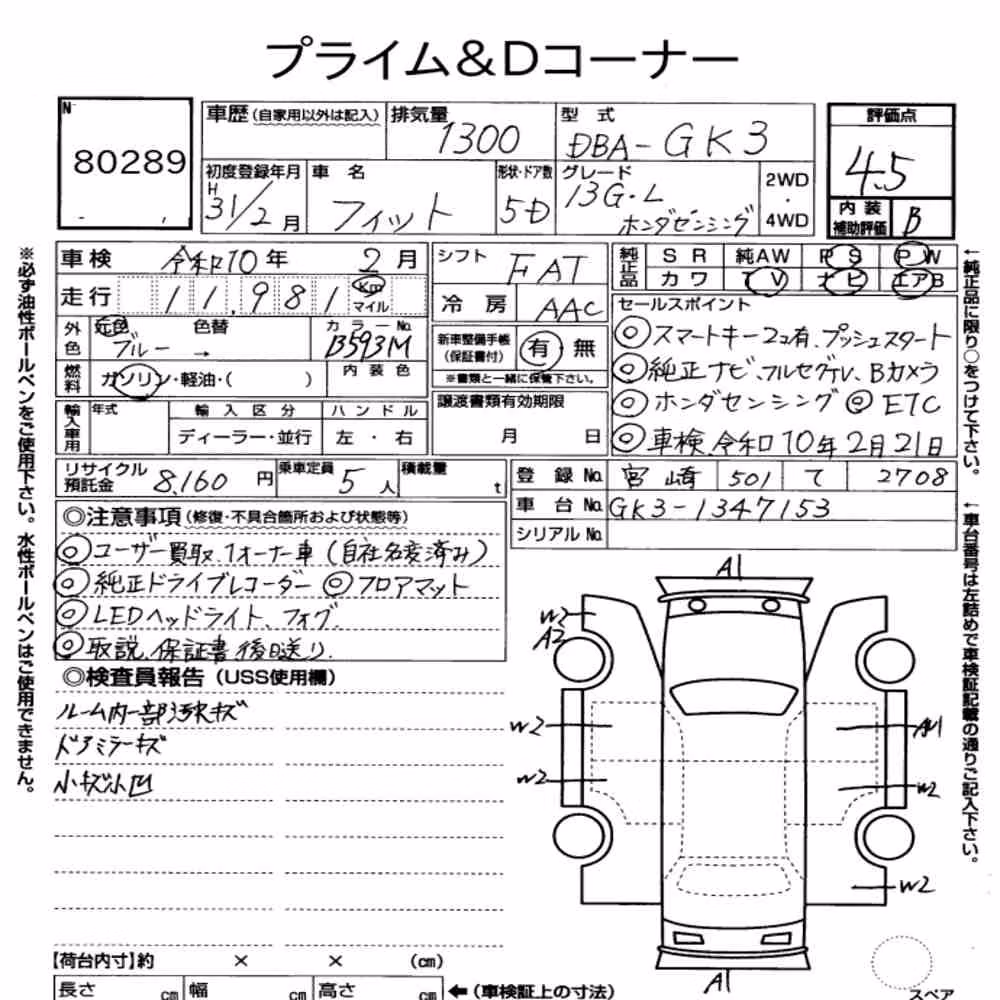 プライム&Dコーナー
N
80289
車歴(自家用以外は記入)
排気量
1300
型式
DBA-GK3
評価点
4.5
内装
補助評価
B
初度登録年月
H
31/2月
車名
フィット
形状・ドア数
5D
グレード
13G・L
ホンダセンシング
2WD
・
4WD
車検 令和10年 2月
走行 11,981 Km
マイル
シフト FAT
冷房 AAC
純正品
SR 純AW PS PW
カワ TV ナビ エアB
外色
元色 色替
ブルー →
カラーNo.
B593M
燃料
ガソリン・軽油・( )
内装色
新車整備手帳
(保証書付)
有 無
※書類と一緒に保管下さい。
輸入車用
年式
輸入区分 ハンドル
ディーラー・並行 左・右
譲渡書類有効期限
月 日
セールスポイント
◎スマートキー2コ有、プッシュスタート
◎純正ナビ、フルセグTV、Bカメラ
◎ホンダセンシング ◎ETC
◎車検、令和10年2月21日
リサイクル
預託金
8,160円
乗車定員
5人
積載量
t
登録No. 宮崎 501 て 2708
車台No. GK3-1347153
シリアルNo.
◎注意事項(修復・不具合箇所および状態等)
◎ユーザー買取、1オーナー車(自社名変済み)
◎純正ドライブレコーダー ◎フロアマット
◎LEDヘッドライト、フォグ、
◎取説、保証書後日送り.
◎検査員報告(USS使用欄)
ルーム内一部汚れキズ
ドアミラーキズ
小キズ小凹
A1
W2
A2
W2
W2
W2
W2
A1
【荷台内寸】約 × × (cm)
長さ cm 幅 cm 高さ cm ←(車検証上の寸法)
スペア
※必ず油性ボールペンをご使用下さい。水性ボールペンはご使用できません。
←純正品に限り○をつけて下さい。
←車台番号は左詰めで車検証記載の通りご記入下さい。